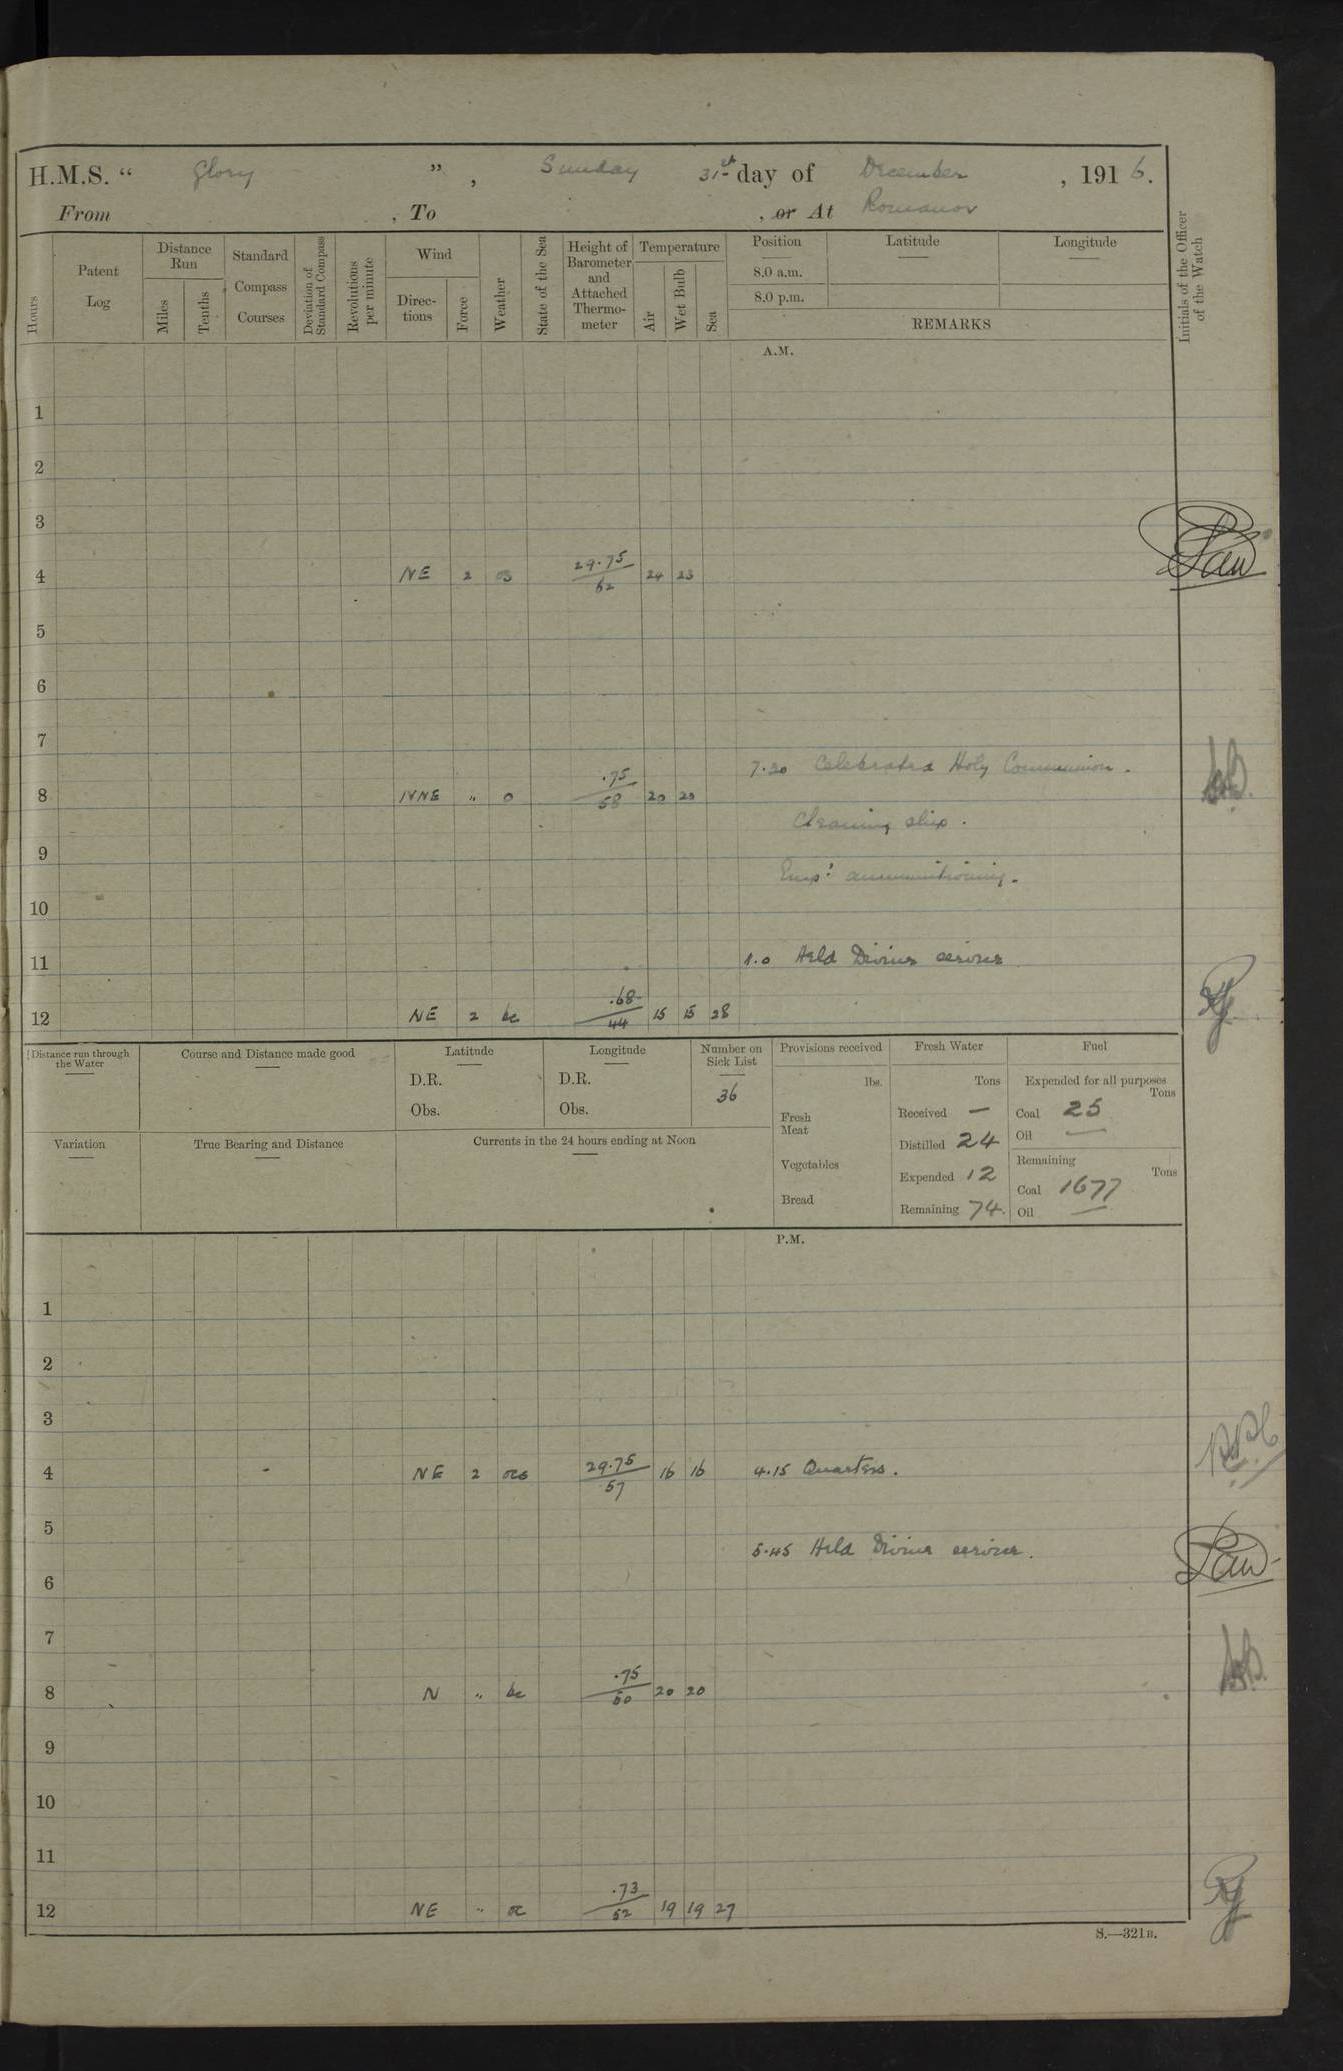 H.M.S. “ Glory ” , Sunday 31st day of December , 1916.
From , To , or At Romanov
Hours
Patent Log
Distance Run
Miles
Tenths
Standard Compass Courses
Deviation of Standard Compass
Revolutions per minute
Wind
Directions
Force
Weather
State of the Sea
Height of Barometer and Attached Thermometer
Temperature
Air
Wet Bulb
Sea
Position
8.0 a.m.
8.0 p.m.
Latitude
Longitude
REMARKS
Initials of the Officer of the Watch
A.M.
1
2
3
4 NE 2 os 29.75/62 24 23
5
6
7
7.20 Celebrated Holy Communion.
8 NNE " o .75/58 20 20
Cleaning ship.
9
Emp: ammunitioning.
10
11 Held Divine service
12 NE 2 bc .68/44 15 15 28
Distance run through the Water
Course and Distance made good
Latitude
D.R.
Obs.
Longitude
D.R.
Obs.
Number on Sick List
36
Provisions received
lbs.
Fresh Meat
Vegetables
Bread
Fresh Water
Tons
Received —
Distilled 24
Expended 12
Remaining 74.
Fuel
Expended for all purposes
Tons
Coal 25
Oil —
Remaining
Tons
Coal 1677
Oil —
Variation
True Bearing and Distance
Currents in the 24 hours ending at Noon
P.M.
1
2
3
4 NE 2 ocs 29.75/57 16 16 4.15 Quarters.
5
5.45 Held Divine service.
6
7
8 N " bc .75/60 20 20
9
10
11
12 NE " oc .73/52 19 19 27
S.—321B.